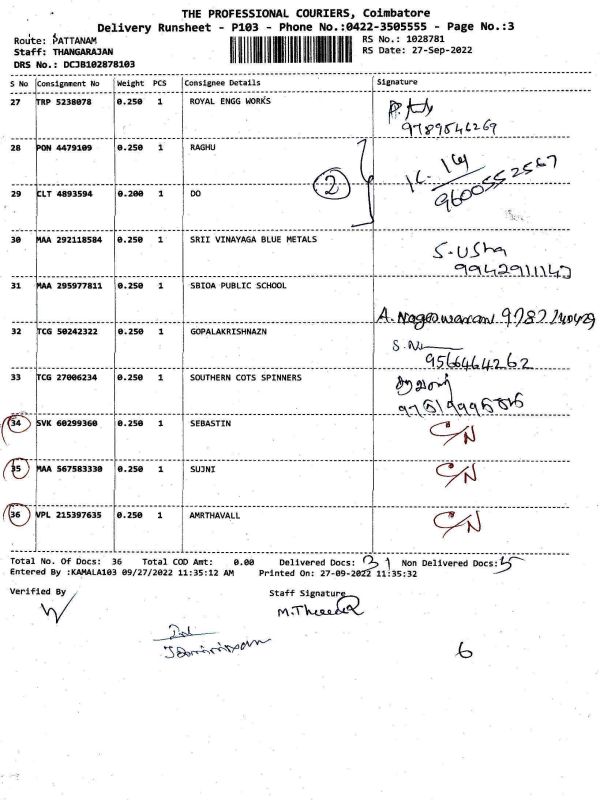 THE PROFESSIONAL COURIERS, Coimbatore
Delivery Runsheet - P103 - Phone No.:0422-3505555 - Page No.:3
Route: PATTANAM
RS No.: 1028781
Staff: THANGARAJAN
RS Date: 27-Sep-2022
DRS No.: DCJB102878103
S No Consignment No Weight PCS Consignee Details Signature
27 TRP 5238078 0.250 1 ROYAL ENGG WORKS
9789546269
28 PON 4479109 0.250 1 RAGHU
2
9600552567
29 CLT 4893594 0.200 1 DO
30 MAA 292118584 0.250 1 SRII VINAYAGA BLUE METALS
S.USha
31 MAA 295977811 0.250 1 SBIOA PUBLIC SCHOOL
32 TCG 50242322 0.250 1 GOPALAKRISHNAZN
9566464262
33 TCG 27006234 0.250 1 SOUTHERN COTS SPINNERS
34 SVK 60299360 0.250 1 SEBASTIN C/N
35 MAA 567583330 0.250 1 SUJNI C/N
36 VPL 215397635 0.250 1 AMRTHAVALL C/N
Total No. Of Docs: 36 Total COD Amt: 0.00 Delivered Docs: 31 Non Delivered Docs: 5
Entered By :KAMALA103 09/27/2022 11:35:12 AM Printed On: 27-09-2022 11:35:32
Verified By Staff Signature
6